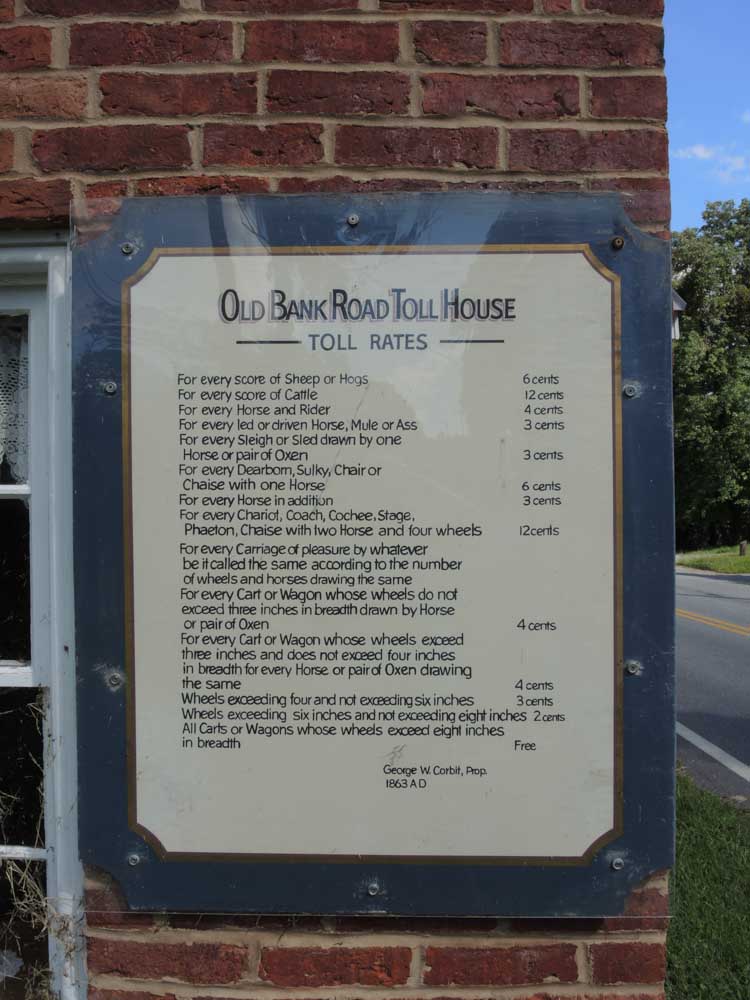 OLD BANK ROAD TOLL HOUSE
TOLL RATES
For every score of Sheep or Hogs 6 cents
For every score of Cattle 12 cents
For every Horse and Rider 4 cents
For every led or driven Horse, Mule or Ass 3 cents
For every Sleigh or Sled drawn by one
Horse or pair of Oxen 3 cents
For every Dearborn, Sulky, Chair or
Chaise with one Horse 6 cents
For every Horse in addition 3 cents
For every Chariot, Coach, Cochee, Stage,
Phaeton, Chaise with two Horse and four wheels 12 cents
For every Carriage of pleasure by whatever
be it called the same according to the number
of wheels and horses drawing the same
For every Cart or Wagon whose wheels do not
exceed three inches in breadth drawn by Horse
or pair of Oxen 4 cents
For every Cart or Wagon whose wheels exceed
three inches and does not exceed four inches
in breadth for every Horse or pair of Oxen drawing
the same 4 cents
Wheels exceeding four and not exceeding six inches 3 cents
Wheels exceeding six inches and not exceeding eight inches 2 cents
All Carts or Wagons whose wheels exceed eight inches
in breadth Free
George W. Corbit, Prop.
1863 A D